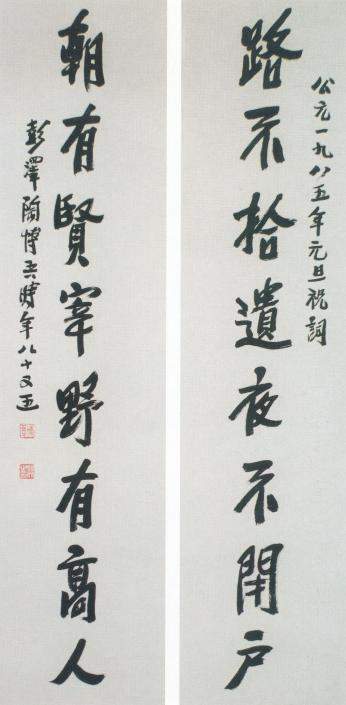 公元一九八五年元旦祝詞
路不拾遺夜不閉戶
朝有賢宰野有高人
彭澤陶博吾時年八十又五